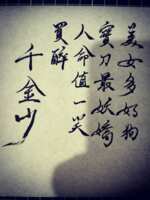 美女多好狗
寶刀最妖嬌
人命值一笑
買醉
千金少